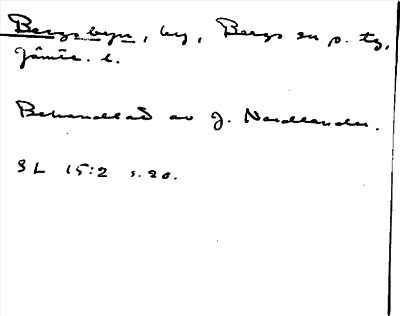 Bergsbyn, by, Bergs sn o. tg,
Jämtl. l.
Behandlad av J. Nordlander.
SL 15:2 s. 20.